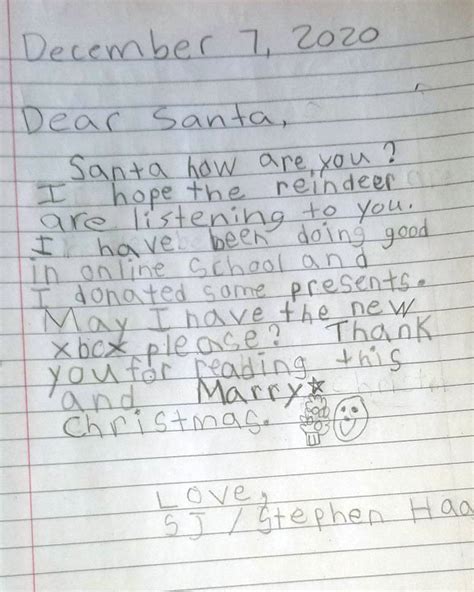 December 7, 2020
Dear Santa,
Santa how are you?
I hope the reindeer
are listening to you.
I have been doing good
in online school and
I donated some presents.
May I have the new
xbcx please? Thank
you for reading this
and Marry
christmas.
Love,
SJ / Stephen Haa